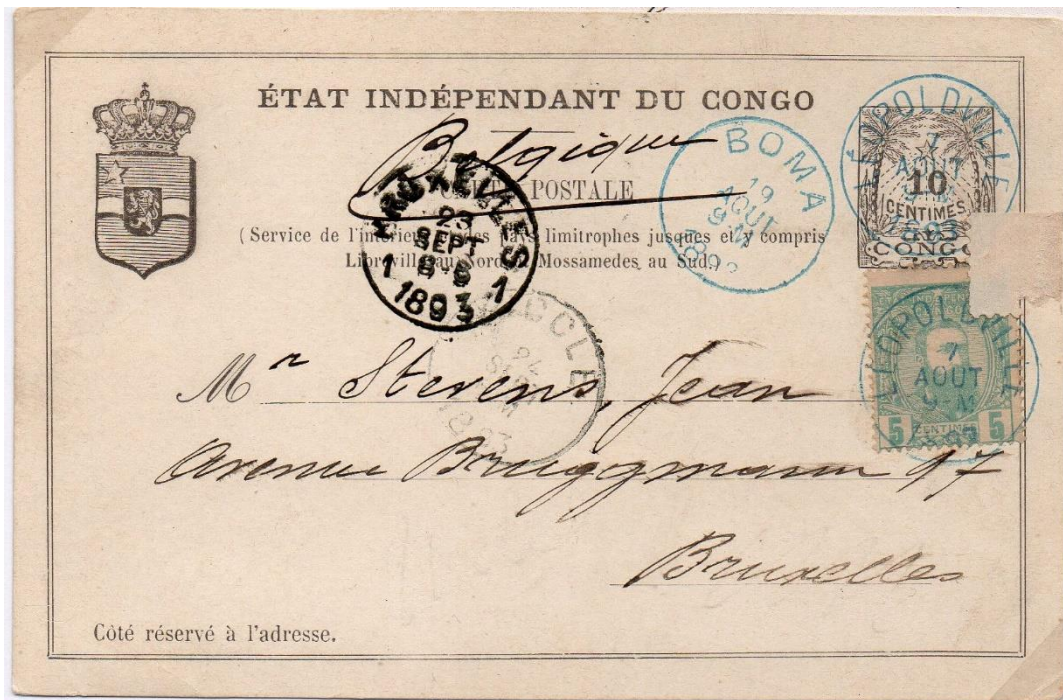 ÉTAT INDÉPENDANT DU CONGO
Belgique
CARTE POSTALE
(Service de l'intérieur et des pays limitrophes jusques et y compris
Libreville au Nord et Mossamedes au Sud.)
10
CENTIMES
CONGO
LÉOPOLDVILLE
7
AOUT
9 M
1893
BOMA
19
AOUT
9 M
BRUXELLES
23
SEPT
8-S
1 1893 1
UCCLE
24
1893
LEOPOLDVILLE
7
AOUT
9 M
1893
5 5
CENTIMES
Mr Stevens, Jean
Avenue Bruggmann 97
Bruxelles
Côté réservé à l'adresse.